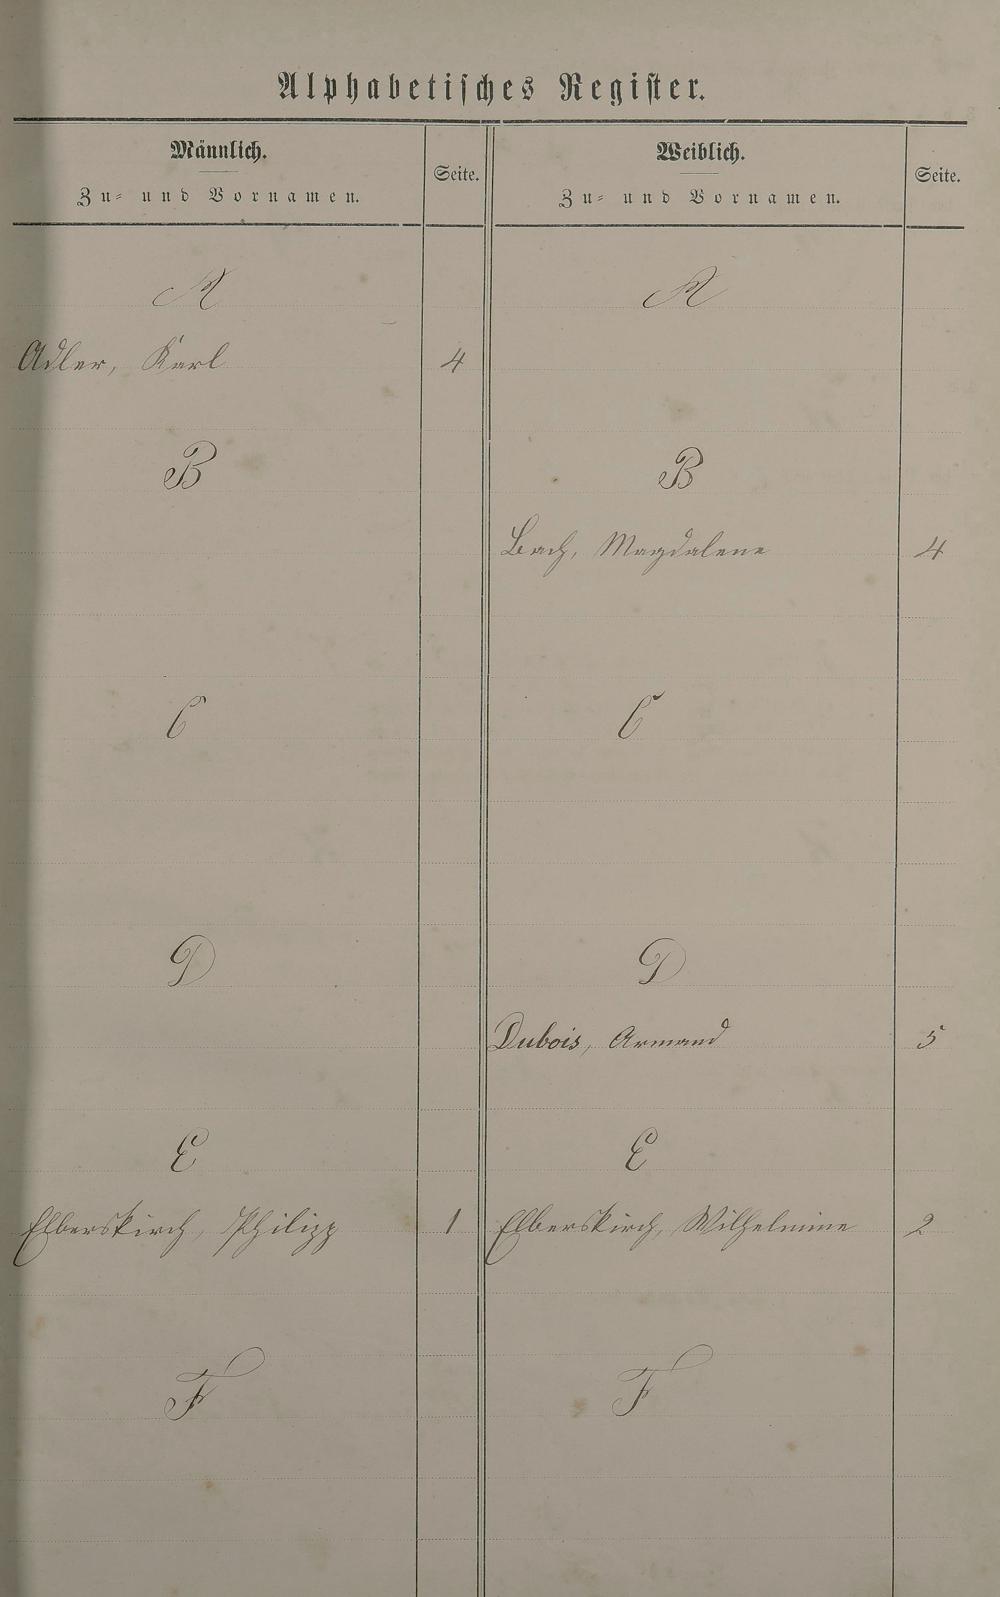 Alphabetisches Register.
Männlich.
Zu- und Vornamen.
Seite.
Weiblich.
Zu- und Vornamen.
Seite.
A
A
Adler, Karl 4
B
B
Bach, Magdalene 4
C
C
D
D
Dubois, Armand 5
E
E
Elberskirch, Philipp 1
Elberskirch, Wilhelmine 2
F
F